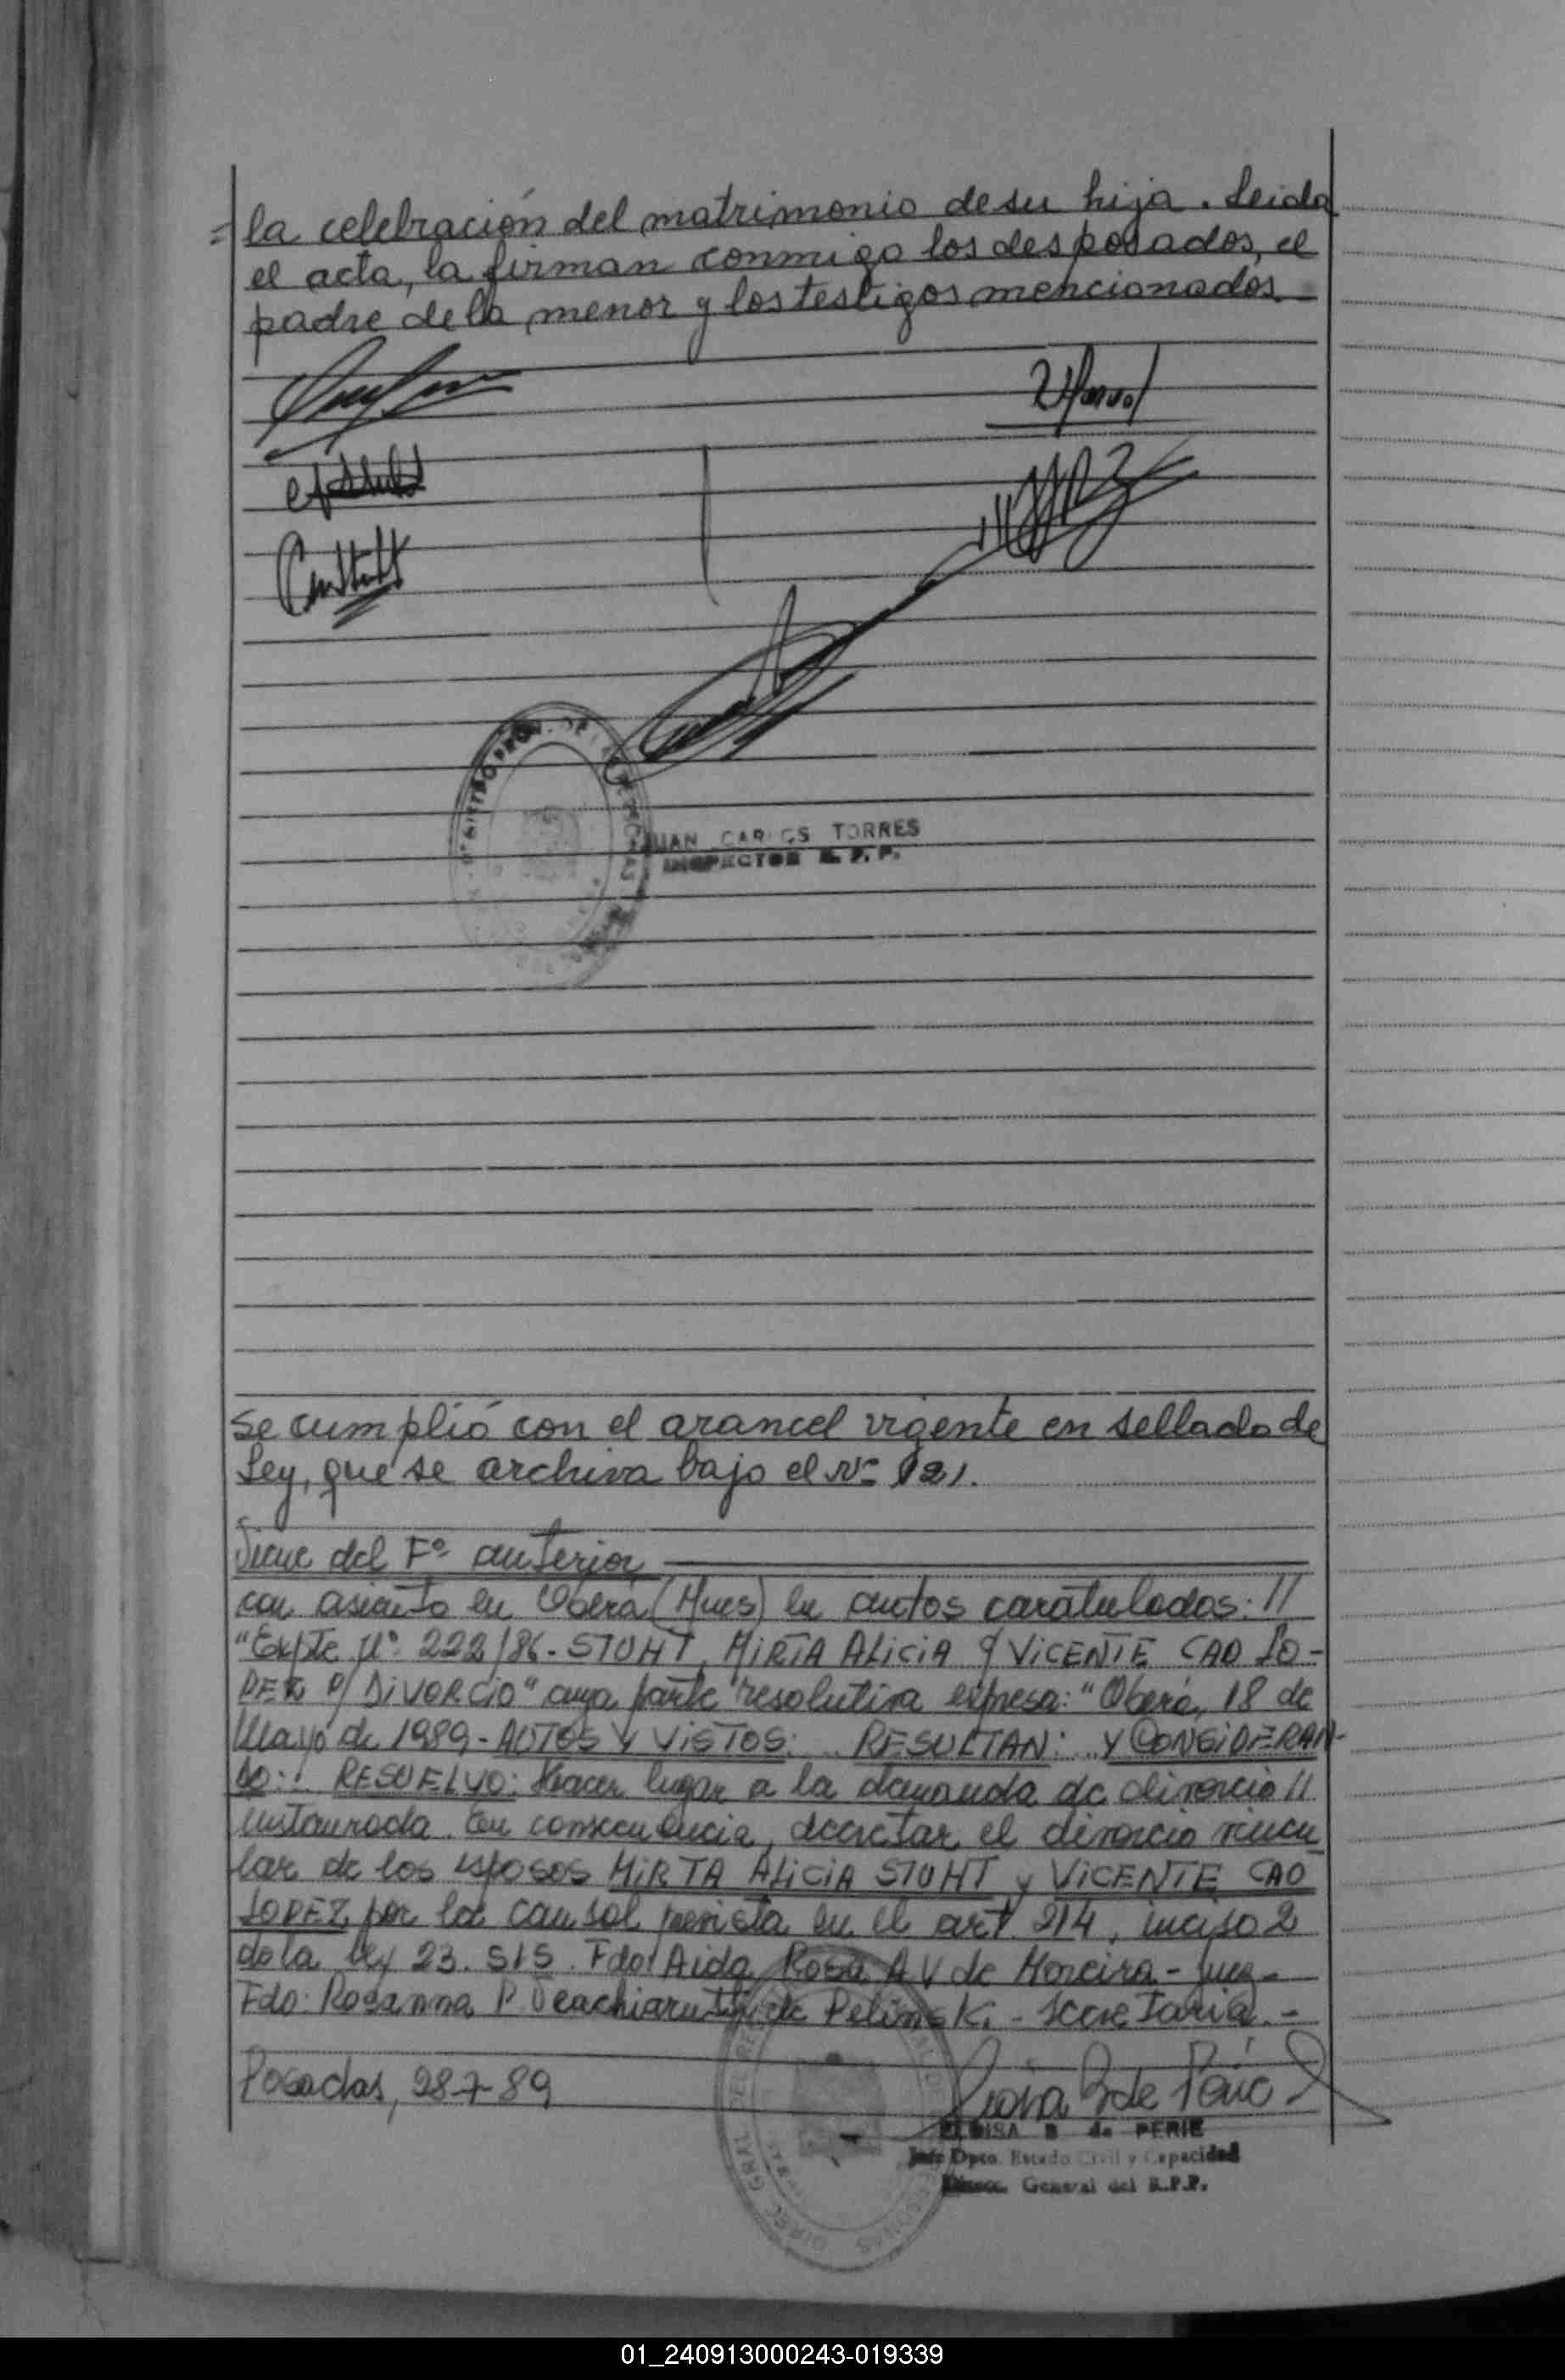 = la celebración del matrimonio de su hija. Leida
el acta, la firman conmigo los desposados, el
padre de la menor y los testigos mencionados.
JUAN CARLOS TORRES
INSPECTOR R. P. P.
Se cumplió con el arancel vigente en sellado de
Ley, que se archiva bajo el Nº 121.
Viene del Fº anterior
con asiento en Oberá (Mnes) en autos caratulados: //
"Expte Nº 222/86 - STOHT, MIRTA ALICIA c/ VICENTE CAO LO-
PEZ s/ DIVORCIO" cuya parte resolutiva expresa: "Oberá, 18 de
Mayo de 1989 - AUTOS Y VISTOS: .. RESULTAN: .. Y CONSIDERAN-
DO: .. RESUELVO: Hacer lugar a la demanda de divorcio //
instaurada. En consecuencia, decretar el divorcio vincu_
lar de los esposos MIRTA ALICIA STOHT y VICENTE CAO
LOPEZ, por la causal prevista en el art. 214, inciso 2
de la ley 23.515. Fdo: Aida Rosa A V de Moreira - Juez -
Fdo: Rosanna P. de Pelinski - Secretaria. -
Posadas, 28-7-89
ELOISA B de PERIE
Jefe Dpto. Estado Civil y Capacidad
Direcc. General del R.P.P.
01_240913000243-019339